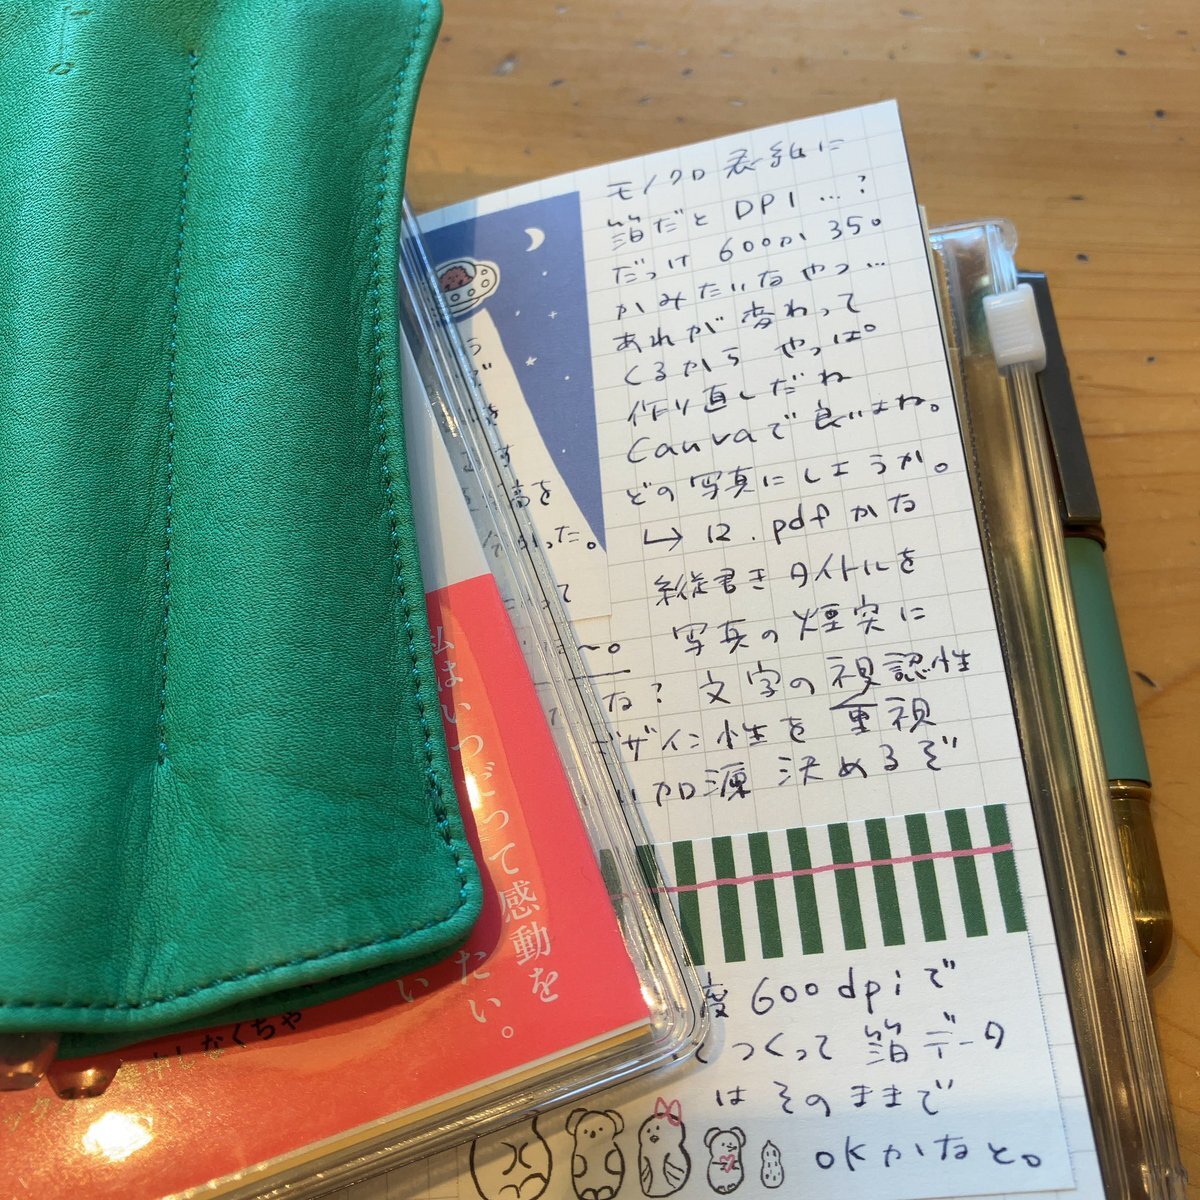 モノクロ表紙に
箔だと DPI …?
だっけ 600か 350
かみたいなやつ…
あれが変わって
くるから やっぱ
作り直しだね
Canvaで良いよね。
どの写真にしようか。
↳ 12.pdf かな
縦書きタイトルを
写真の煙突に
な? 文字の視認性
デザイン性を重視
加源 決めるぞ
度 600dpiで
つくって 箔データ
は そのままで
OKかなと。
高を
った。
私はいつだって感動を
たい。
い
中しなくちゃ